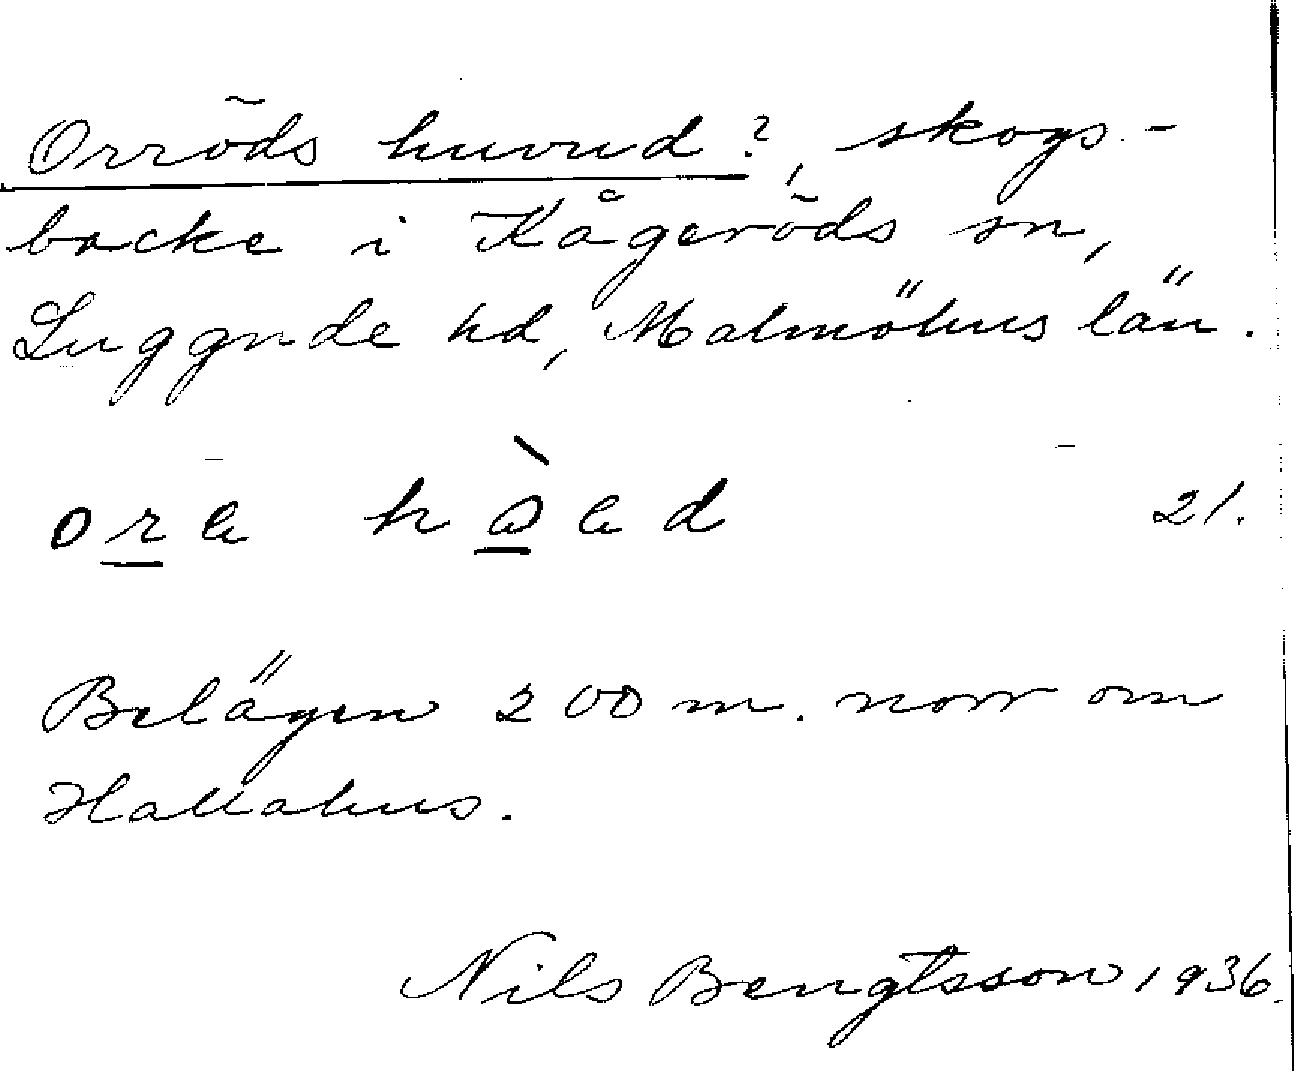 Orröds huvud?, skogs-
backe i Kågeröds sn,
Luggude hd, Malmöhus län.
21.
Belägen 200 m. norr om
Hallahus.
Nils Bengtsson 1936.